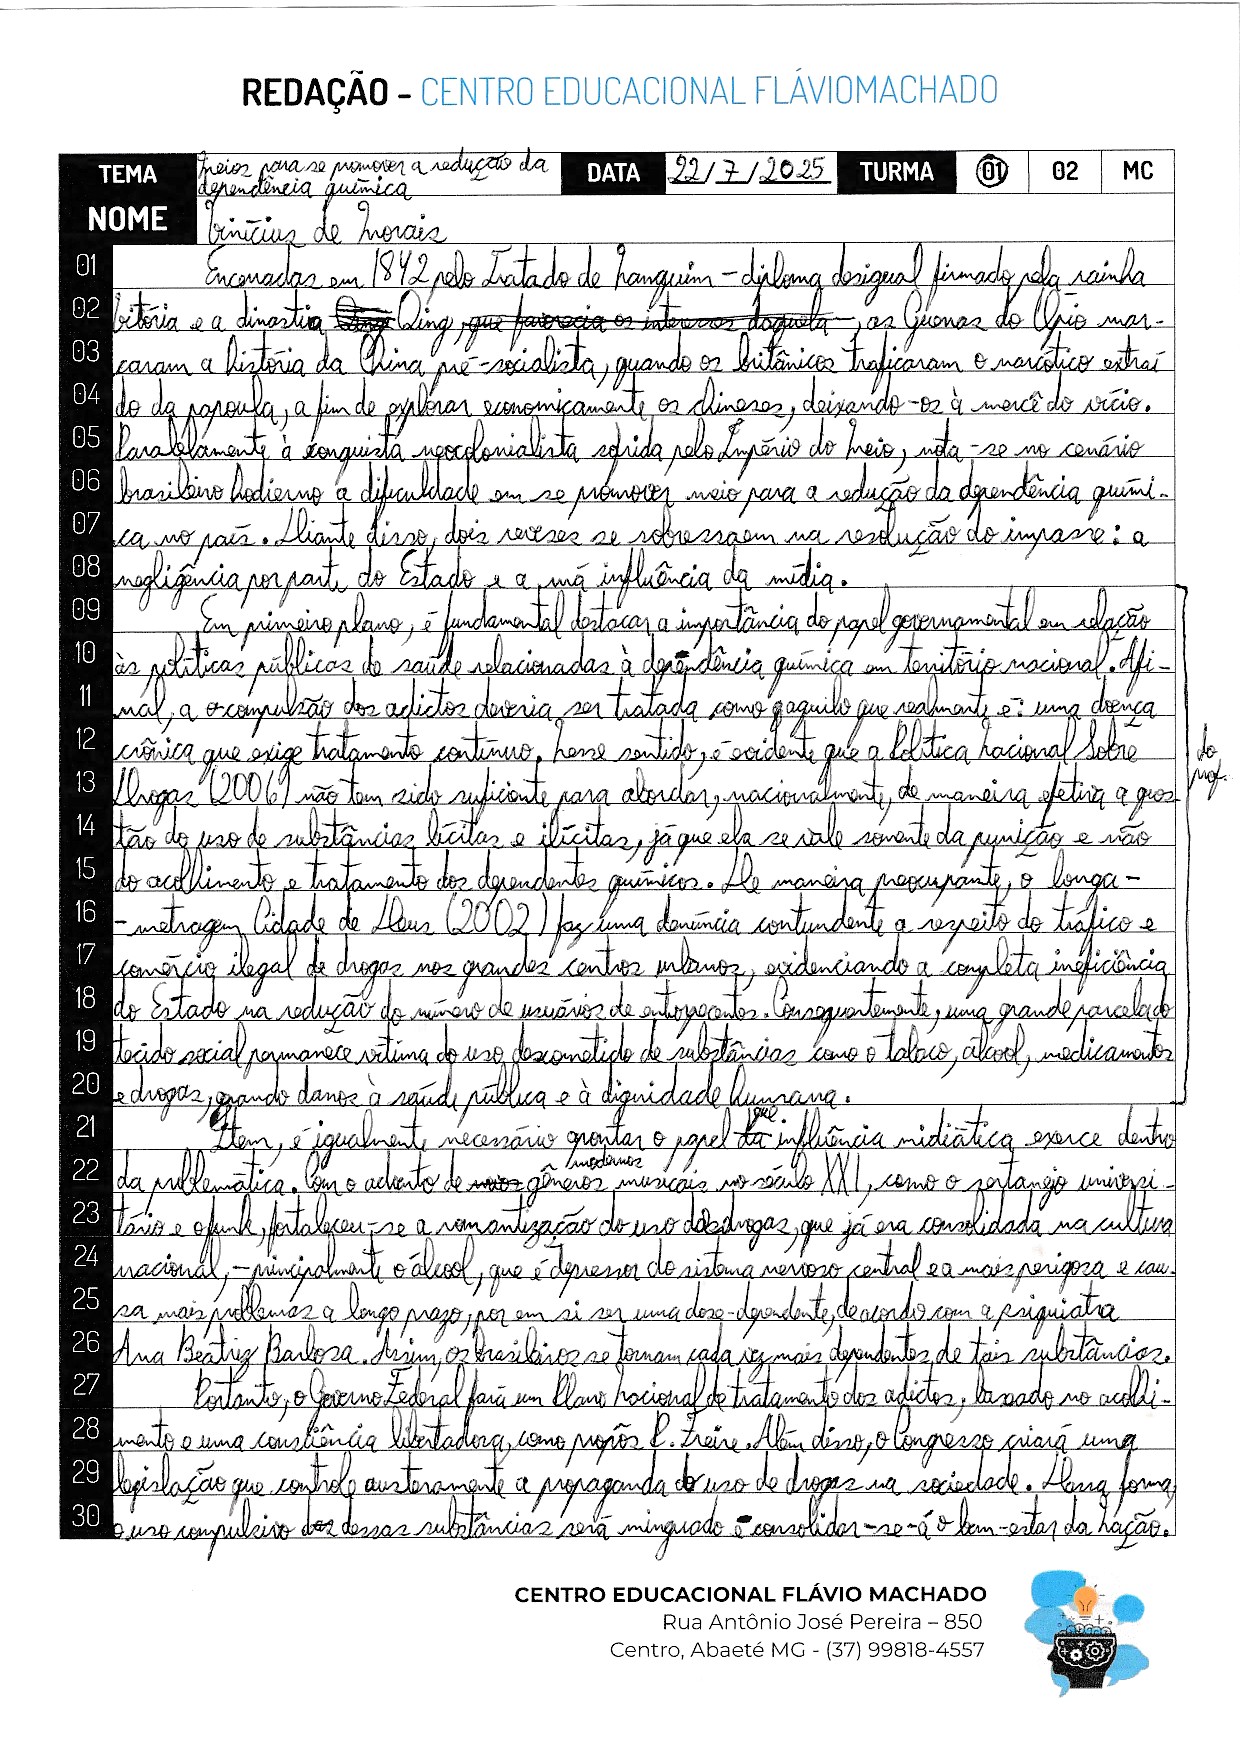 REDAÇÃO - CENTRO EDUCACIONAL FLÁVIOMACHADO
TEMA Meios para se promover a redução da dependência química DATA 22/7/2025 TURMA 01 02 MC
NOME Vinícius de Morais
01 Encerradas em 1842 pelo Tratado de Nanquim - diploma desigual firmado pela rainha
02 Vitória e a dinastia Qing, que favorecia os interesses daquela -, as Guerras do Ópio mar-
03 caram a história da China pré-socialista, quando os britânicos traficaram o narcótico extraí
04 do da papoula, a fim de explorar economicamente os chineses, deixando-os à mercê do vício.
05 Paralelamente à conquista neocolonialista sofrida pelo Império do Meio, nota-se no cenário
06 brasileiro hodierno a dificuldade em se promover meio para a redução da dependência quími-
07 ca no país. Diante disso, dois reveses se sobressaem na resolução do impasse: a
08 negligência por parte do Estado e a má influência da mídia.
09 Em primeiro plano, é fundamental destacar a importância do papel governamental em relação
10 às políticas públicas de saúde relacionadas à dependência química em território nacional. Afi-
11 nal, a compulsão dos adictos deveria ser tratada como aquilo que realmente é: uma doença
12 crônica que exige tratamento contínuo. Nesse sentido, é evidente que a Política Nacional Sobre
do prof.
13 Drogas (2006) não tem sido suficiente para abordar, nacionalmente, de maneira efetiva a ques
14 tão do uso de substâncias lícitas e ilícitas, já que ela se vale somente da punição e não
15 do acolhimento e tratamento dos dependentes químicos. De maneira preocupante, o longa-
16 -metragem Cidade de Deus (2002) faz uma denúncia contundente a respeito do tráfico e
17 comércio ilegal de drogas nos grandes centros urbanos, evidenciando a completa ineficiência
18 do Estado na redução do número de usuários de entorpecentes. Consequentemente, uma grande parcela do
19 tecido social permanece vítima do uso descometido de substâncias como o tabaco, álcool, medicamentos
20 e drogas, gerando danos à saúde pública e à dignidade humana.
21 Item, é igualmente necessário apontar o papel que influência midiática exerce dentro
22 da problemática. Com o advento de modernos gêneros musicais no século XXI, como o sertanejo universi-
23 tário e o funk, fortaleceu-se a romantização do uso das drogas, que já era consolidada na cultura
24 nacional, - principalmente o álcool, que é depressor do sistema nervoso central e a mais perigosa e cau-
25 sa mais problemas a longo prazo, por em si ser uma dose-dependente, de acordo com a psiquiatra
26 Ana Beatriz Barbosa. Assim, os brasileiros se tornam cada vez mais dependentes de tais substâncias.
27 Portanto, o Governo Federal fará um Plano Nacional de tratamento dos adictos, baseado no acolhi-
28 mento e uma consciência libertadora, como propôs P. Freire. Além disso, o Congresso criará uma
29 legislação que controle austeramente a propaganda do uso de drogas na sociedade. Dessa forma,
30 o uso compulsivo dessas substâncias será minguado e consolidar-se-á o bem-estar da Nação.
CENTRO EDUCACIONAL FLÁVIO MACHADO
Rua Antônio José Pereira – 850
Centro, Abaeté MG - (37) 99818-4557